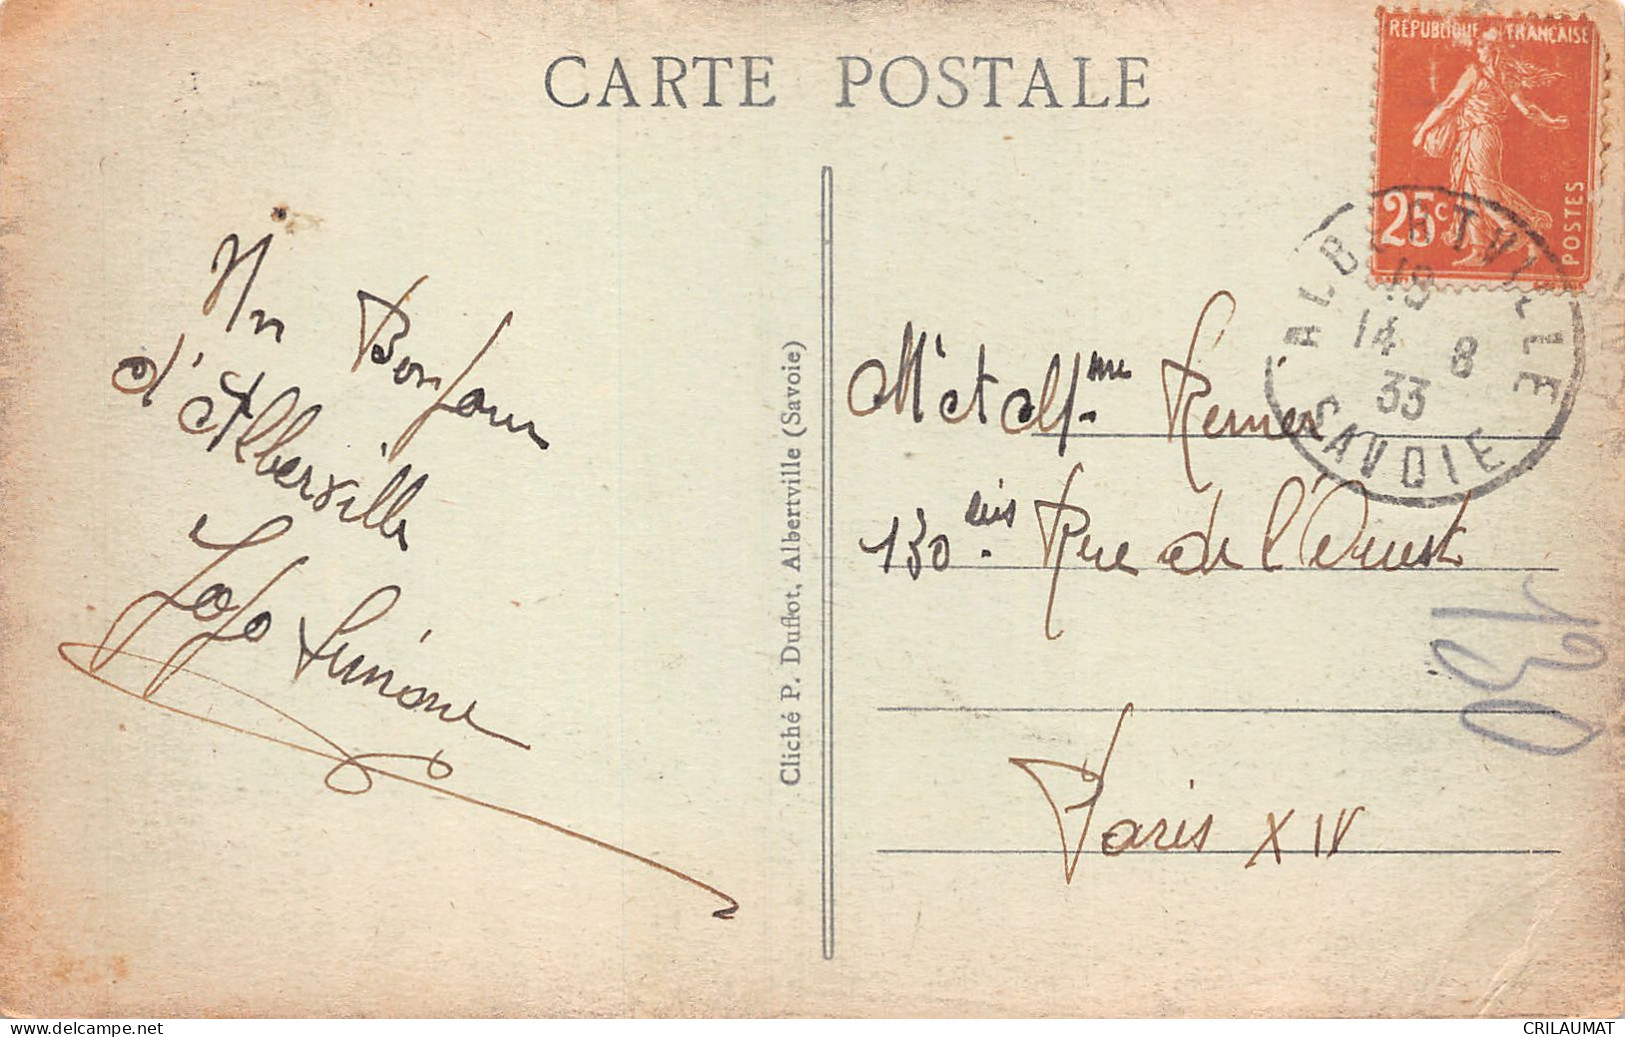 CARTE POSTALE
REPUBLIQUE FRANÇAISE
25c
POSTES
ALBERTVILLE
19
14 8
33
SAVOIE
Un Bonjour
d'Alberville
Jojo Simone
Cliché P. Duflot, Albertville (Savoie)
Mr et Mme
130 bis Rue de l'Ouest
130
Paris XIV
delcampe.net
CRILAUMAT